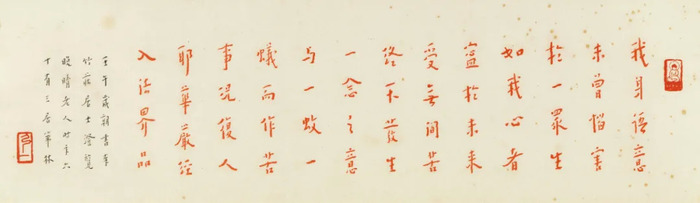 我身語意
未曾惱害
於一眾生
如我心者
寧於未來
受無間苦
終不發生
一念之意
与一蚊一
蟻而作苦
事況復人
耶華嚴經
入法界品
壬午歲朝書奉
竹莊居士澄覽
晚晴老人時年六
十有三居林